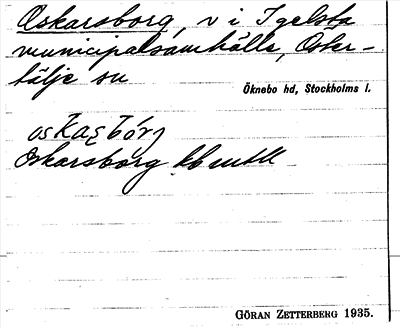 Oskarsborg, v i Igelsta
municipalsamhälle, Öster-
tälje sn
Öknebo hd, Stockholms l.
oskasbórj
Oskarsborg
GÖRAN ZETTERBERG 1935.